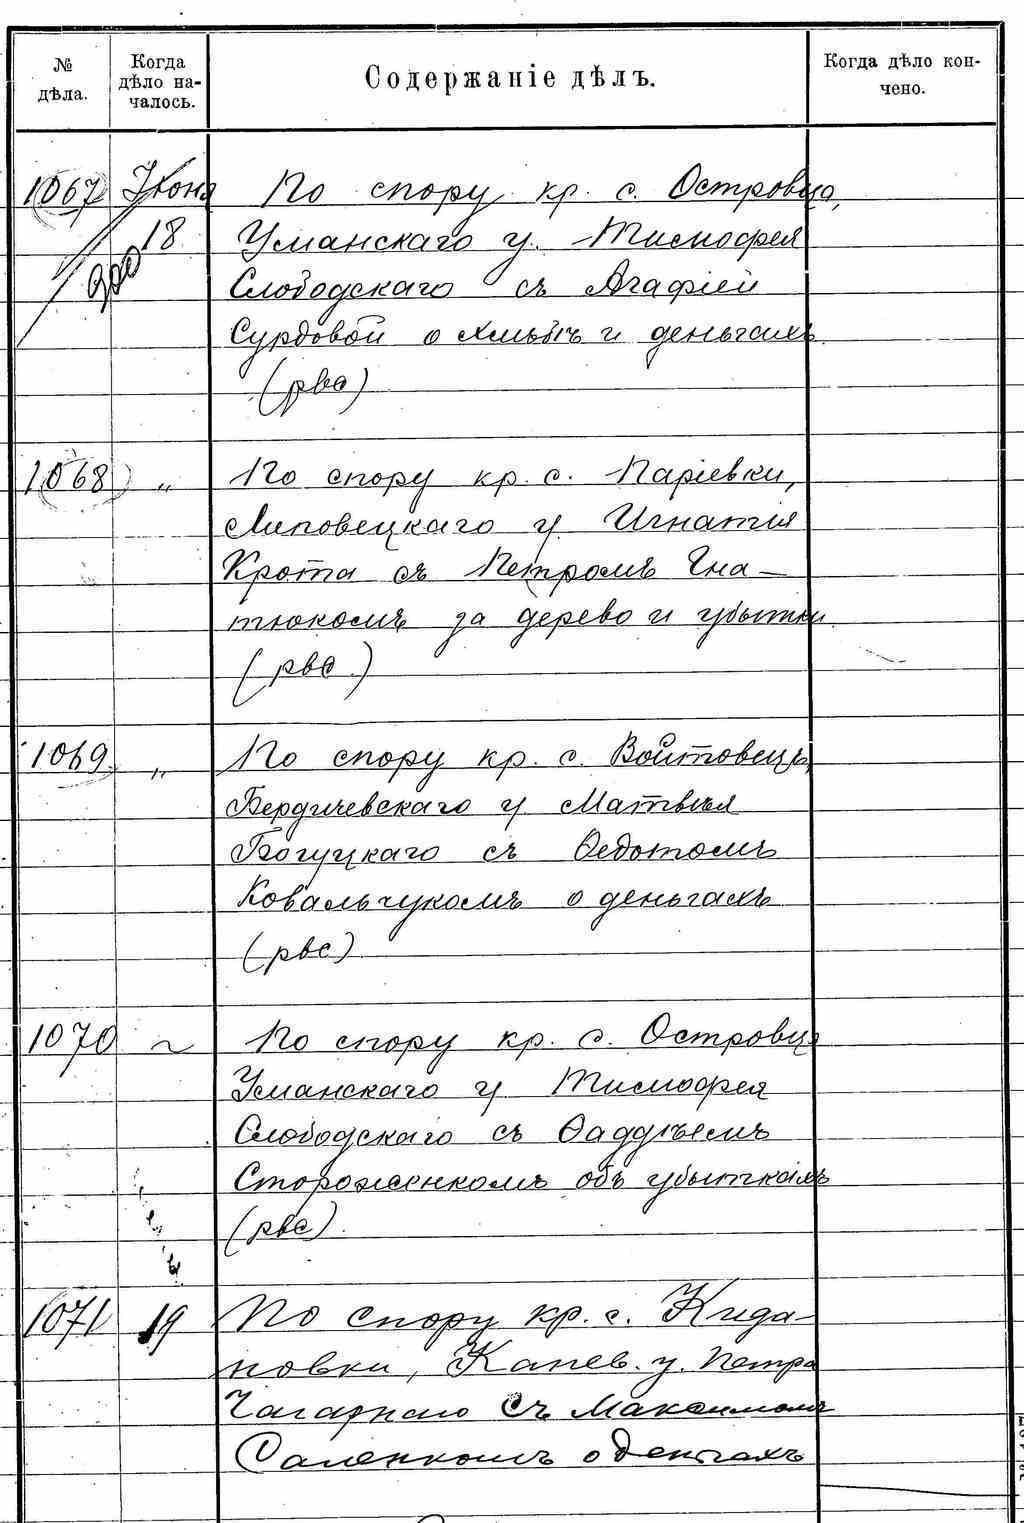 № дѣла.
Когда дѣло на-
чалось.
Содержаніе дѣлъ.
Когда дѣло кон-
чено.
1067 Іюня По спору кр. с. Островца,
18 Уманскаго у. Тимофея
Слободскаго съ Агафіей
Сурдовой о хлѣбѣ и деньгахъ
(рвс)
1068 „ По спору кр. с. Паріевки,
Липовецкаго у. Игнатія
Крота съ Петромъ Гна-
тюкомъ за дерево и убытки
(рвс.)
1069. „ По спору кр. с. Войтовецъ,
Бердичевскаго у. Матвѣя
Богуцкаго съ Ѳедотомъ
Ковальчукомъ о деньгахъ
(рвс)
1070 „ По спору кр. с. Островца
Уманскаго у Тимофея
Слободскаго съ Ѳаддѣемъ
Стороженкомъ объ убыткахъ
(рвс)
1071 19 По спору кр. с. Кида-
новки, Канев. у. Петра
Чагарнаго съ Максимомъ
Саленкомъ о деньгахъ